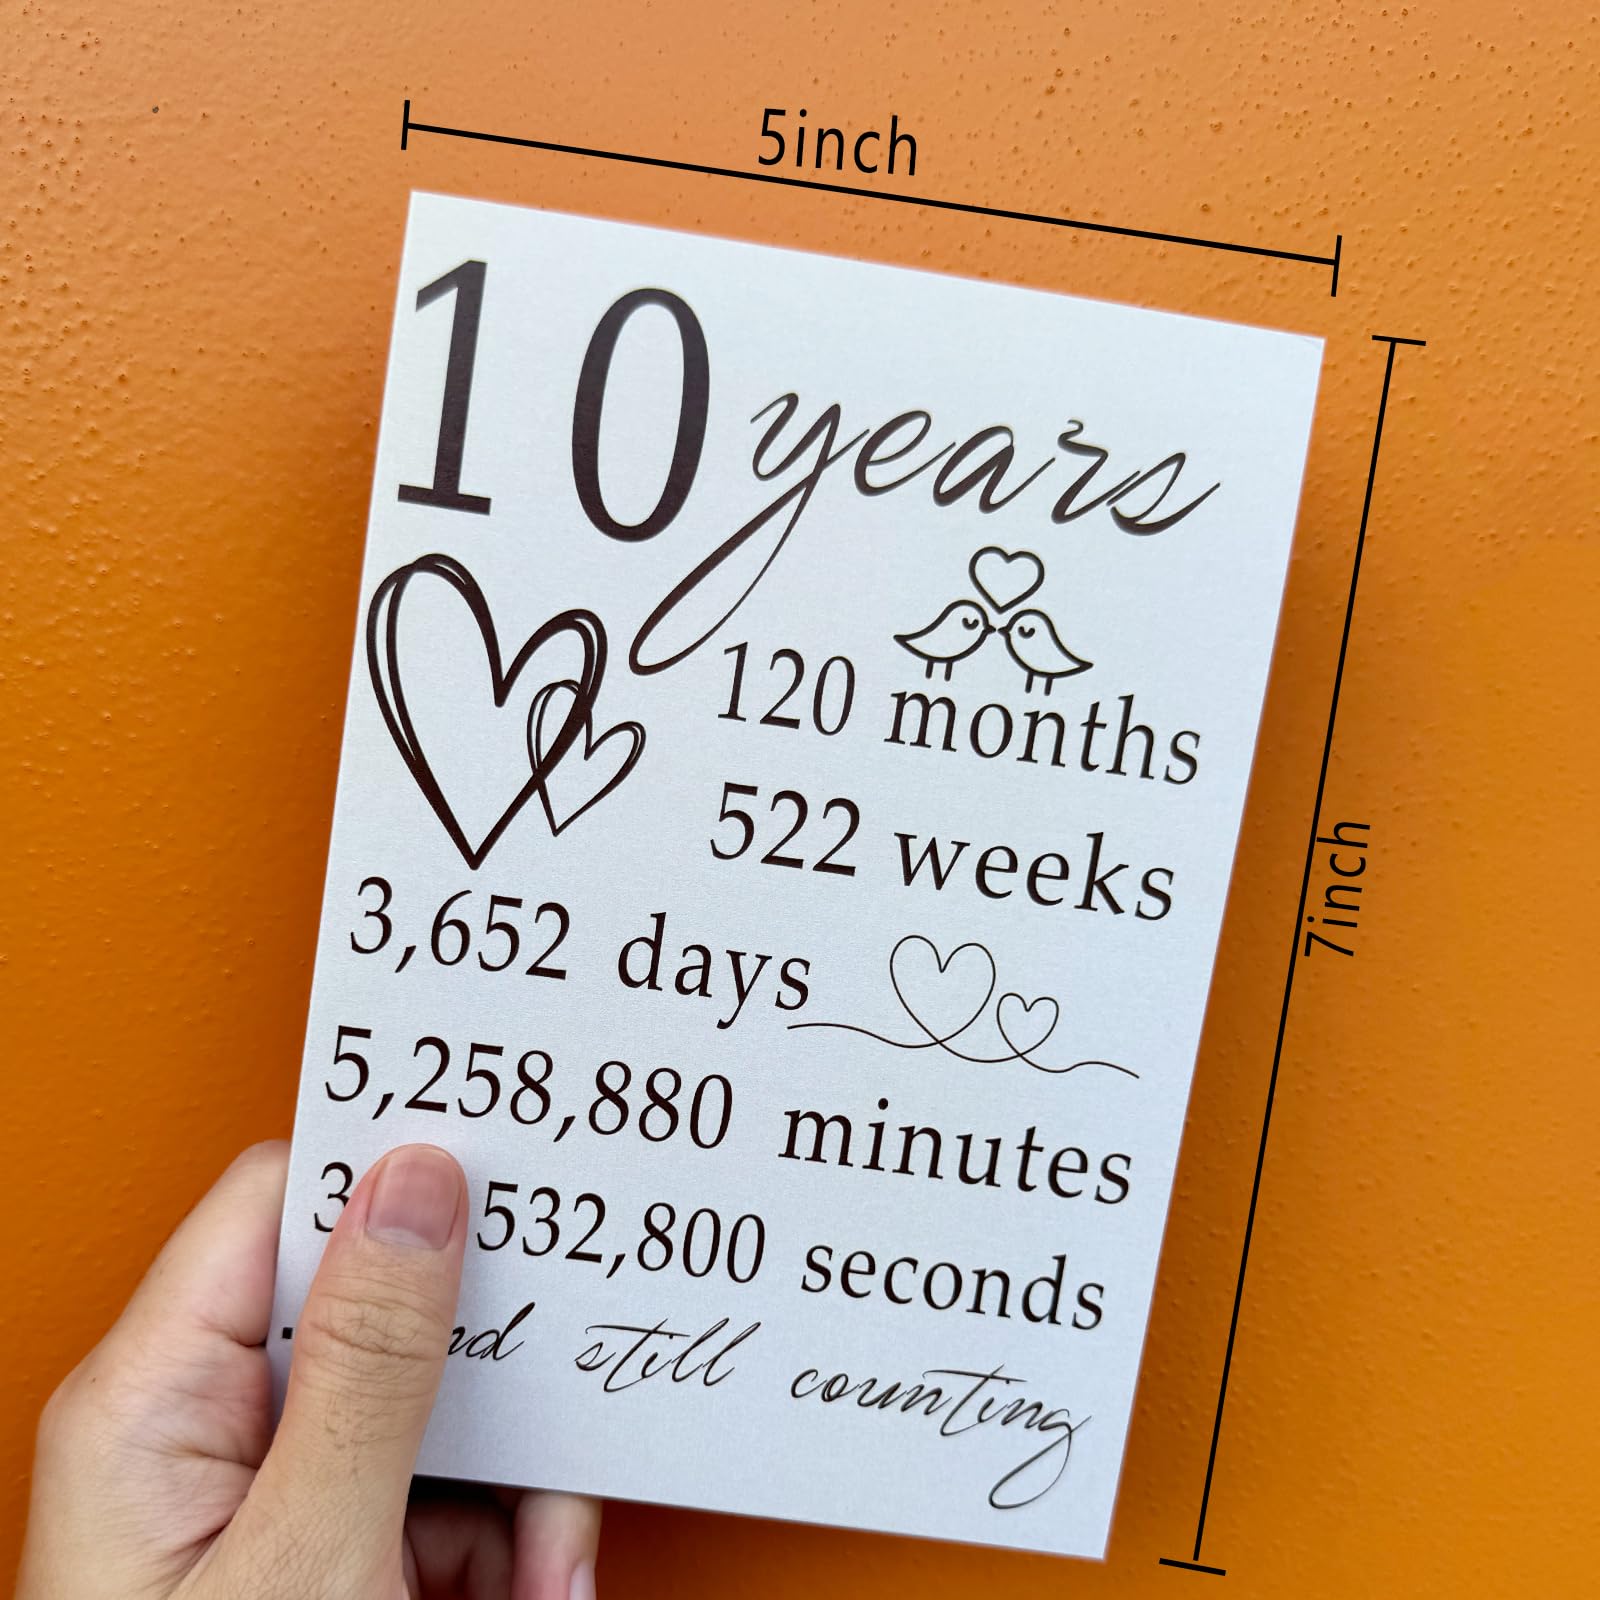 5inch
10 years
120 months
522 weeks
3,652 days
5,258,880 minutes
532,800 seconds
still counting
7inch